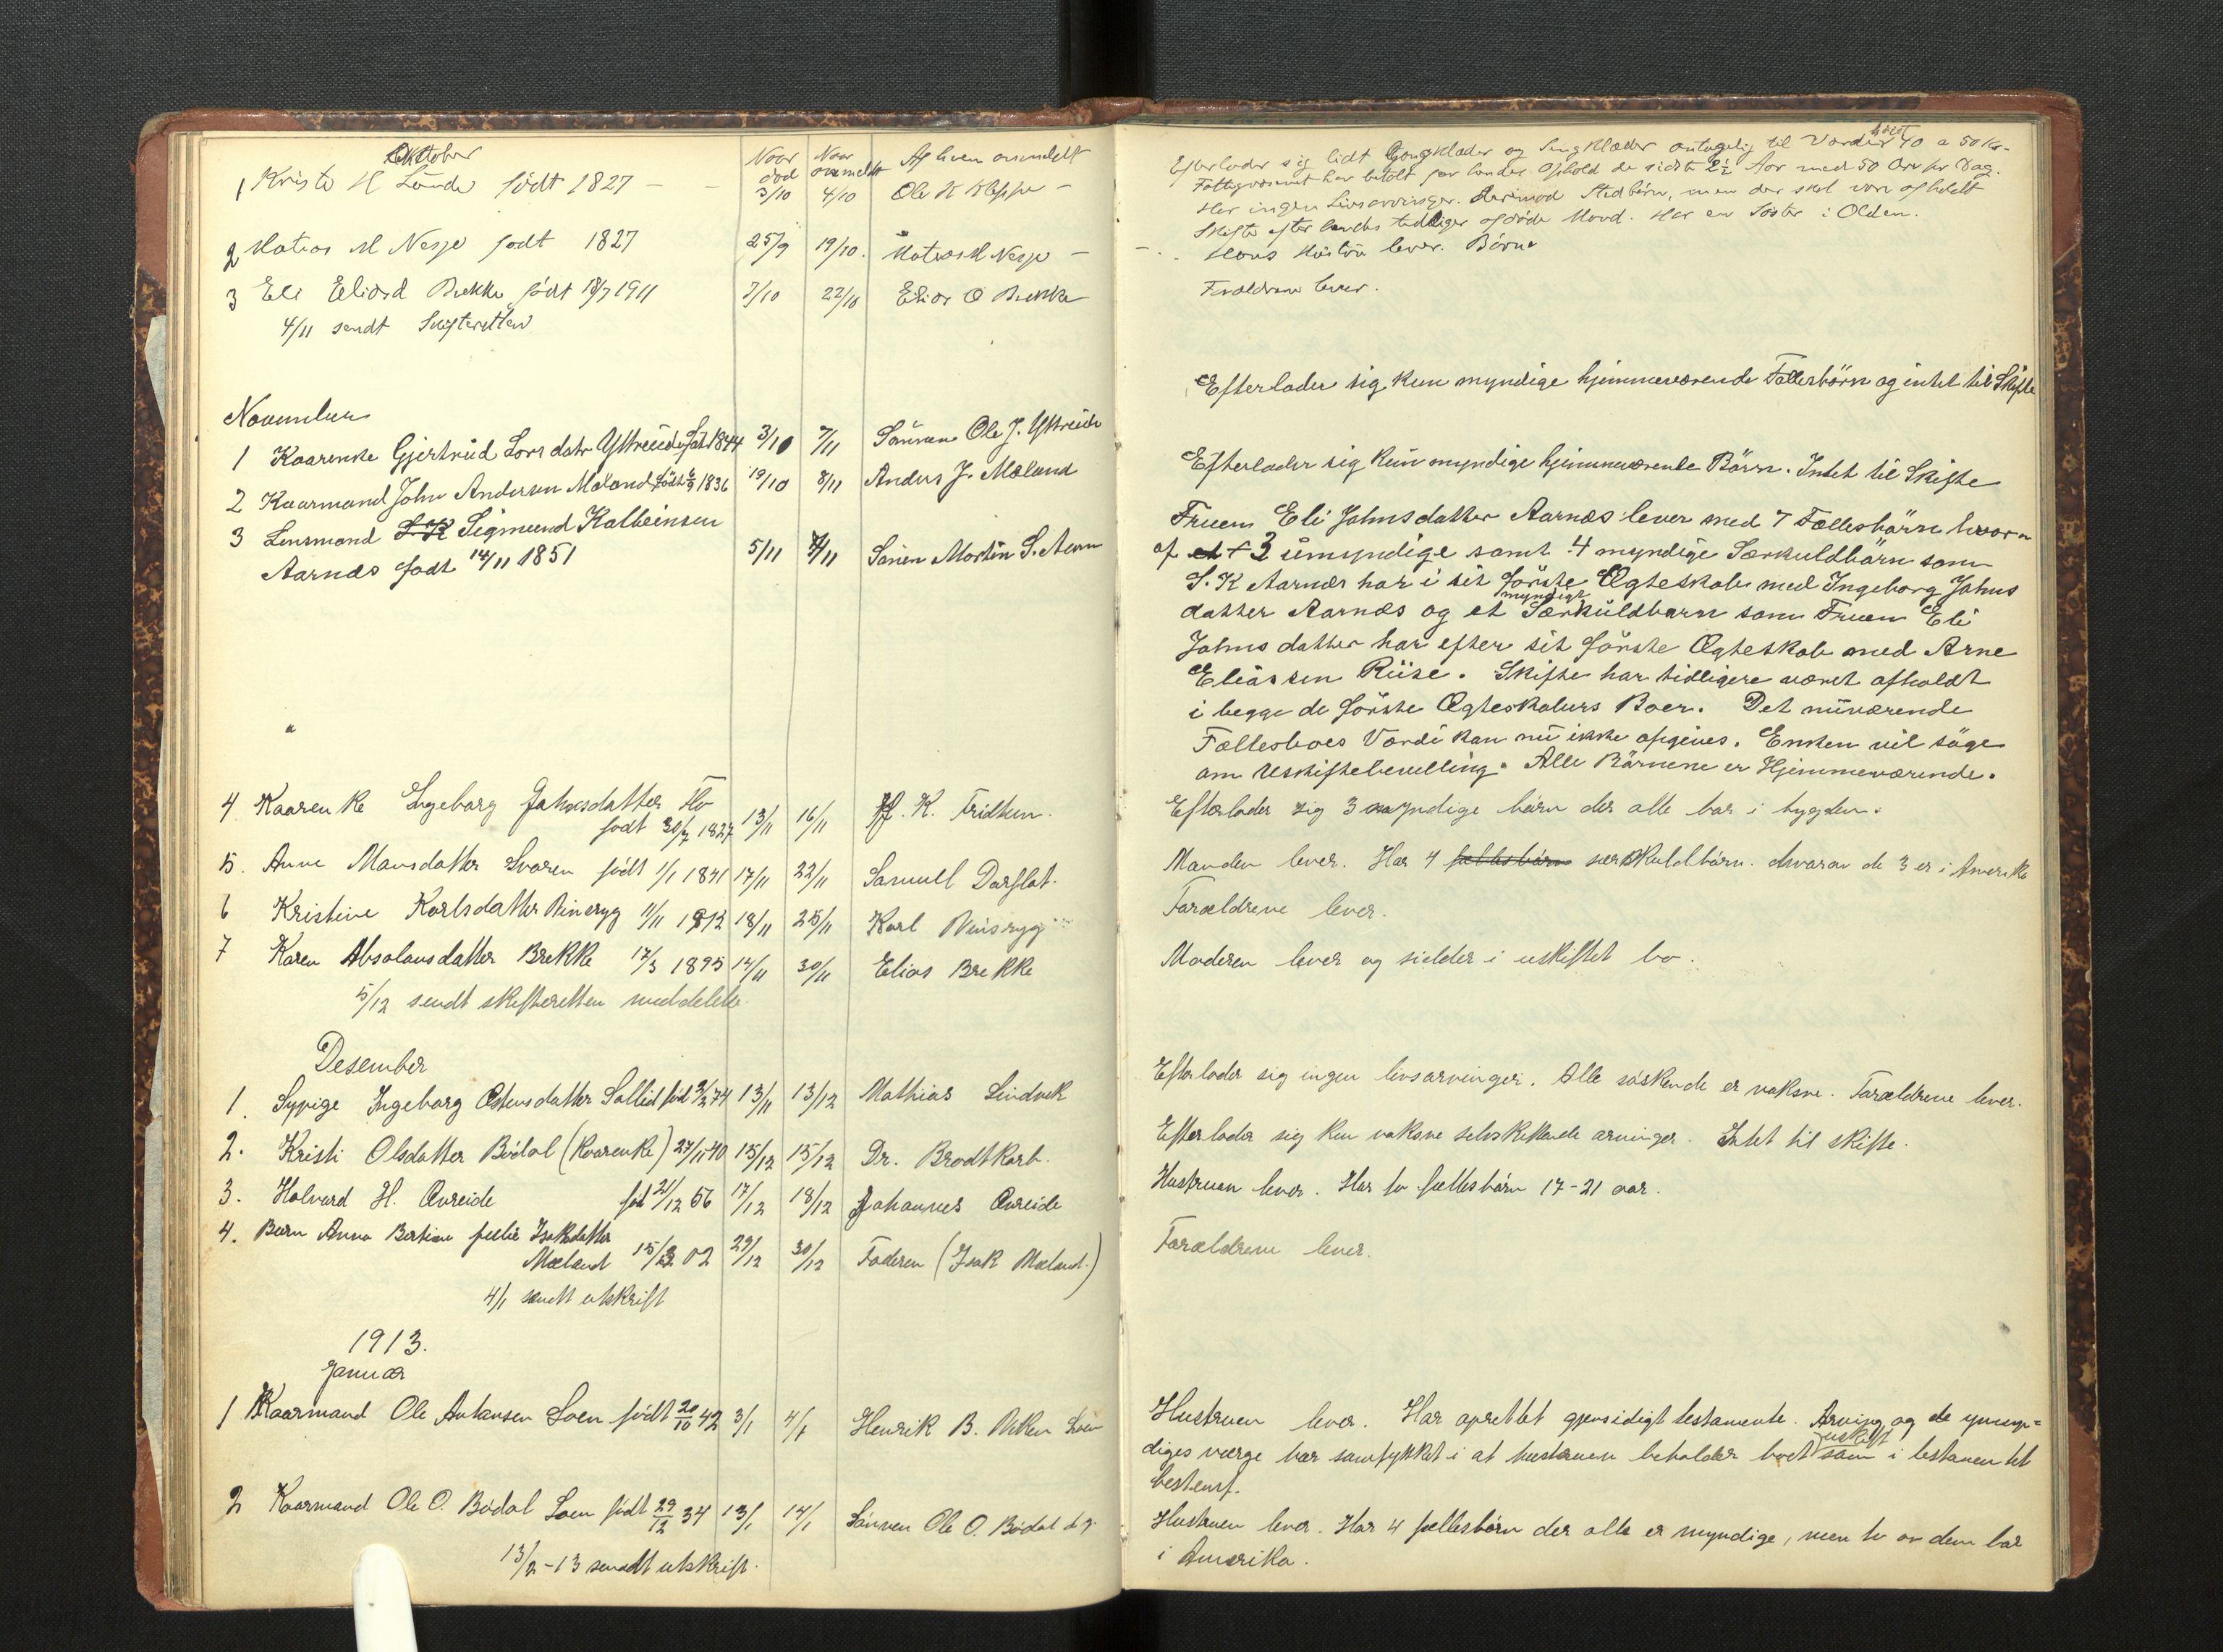 Oktober
Naar død Naar anmeldt Af hvem anmeldt
1 Kristi M Lunde født 1827 - - 3/10 4/10 Ole K Kleppe -
2 Matias M Nesje født 1827 25/9 19/10. Matias M Nesje -
3 Eli Eliasd Brekke født 18/7 1911 7/10 22/10 Elias O Brekke
4/11 sendt Skifteretten
November
1 Kaarenke Gjertrud Larsdatr Ystreeide født 1844 3/10 7/11 Sønnen Ole J. Ystreide
2 Kaarmand John Andersen Mæland født 6/9 1836 19/10 8/11 Anders J. Mæland
3 Lensmand S.K Sigmund Kolbeinsen
Aarnes født 14/11 1851 5/11 7/11 Sønen Morten S. Aarn
4 Kaarenke Ingeborg Johnsdatter Flo
født 30/7 1827 13/11 16/11 J. K. Fridken.
5. Anne Mansdatter Svoren født 1/1 1831 17/11 22/11 Samuel Darflot.
6 Kristine Karlsdatter Vinsryg 11/11 1912 18/11 25/11 Karl Vinsryg
7 Karen Absalonsdatter Brekke 17/3 1895 14/11 30/11 Elias Brekke
5/12 sendt skifteretten meddelele.
Desember
1. Sypige Ingeborg Østensdatter Sollid född 3/2 74 13/11 13/12 Mathias Lindvik
2. Kristi Olsdatter Bødal (Kaarenke) 27/11 40 15/12 15/12 Dr. Brodtkorb.
3. Halvard H. Avreide fød 21/12 56 17/12 18/12 Johannes Avreide
4. Barn Anna Bertine Isakdatter
Mæland 15/3 02 29/12 30/12 Faderen (Isak Mæland.)
4/1 sendt utskrift
1913.
Januar
1 Kaarmand Ole Antonsen Loen født 20/10 42 3/1 4/1 Henrik B. Loen
2 Kaarmand Ole O. Bødal Loen født 29/12 34 13/1 14/1 Sønnen Ole O. Bødal d.y.
13/2 - 13 sendt utskrift.
Efterlader sig lidt Gangklæder og Sengklæder antagelig til Værdi høist 40 a 50 Kr.
Fattigvæsenet har betalt for hendes Ophold de sidste 2½ Aar med 50 Øre pr Dag.
Har ingen Livsarvinger. Derimod Stedbørn, men der skal være afholdt
Skifte efter hendes tidliger afdøde Mand. Har en Søster i Olden.
- . . Hans Hustru lever. Børn
Forældrene lever.
Efterlader sig kun myndige hjemmeværende Fællesbørn og intet til Skifte
Efterlader sig kun myndige hjemmeværende Børn. Intet til Skifte
Fruen Eli Johnsdatter Aarnes lever med 7 Fællesbørn hvor
af et 3 umyndige samt 4 myndige Særkuldbørn som
S. K Aarnes har i sit første Ægteskab med Ingeborg Johns
datter Aarnes og et myndigt Særkuldbarn som Fruen Eli
Johnsdatter har efter sit første Ægteskab med Arne
Eliassen Riise. Skifte har tidligere været afholdt
i begge de første Ægteskabers Boer. Det nuværende
Fællesboes Værdi kan nu ikke opgives. Enken vil søge
om Uskiftebevilling. Alle Børnene er Hjemmeværende.
Efterlader sig 3 myndige børn der alle bor i bygden.
Manden lever. Har 4 fællesbørn særskuldbørn. hvorav de 3 er i Amerika
Forældrene lever.
Moderen lever og sidder i uskiftet bo.
Efterlader sig ingen livsarvinger. Alle søskende er voksne. Forældrene lever.
Efterlader sig kun voksne selvskiftende arvinger. Intet til skifte.
Hustruen lever. Har to fællesbørn 17-21 aar.
Forældrene lever.
Hustruen lever. Har oprettet gjensidigt testamente. Arving og de umyn=
diges værge har samtykket i at hustruen beholder boet uskift som i testamentet
bestemt.
Hustruen lever. Har 4 fællesbørn der alle er myndige, men to av dem bor
i Amerika.